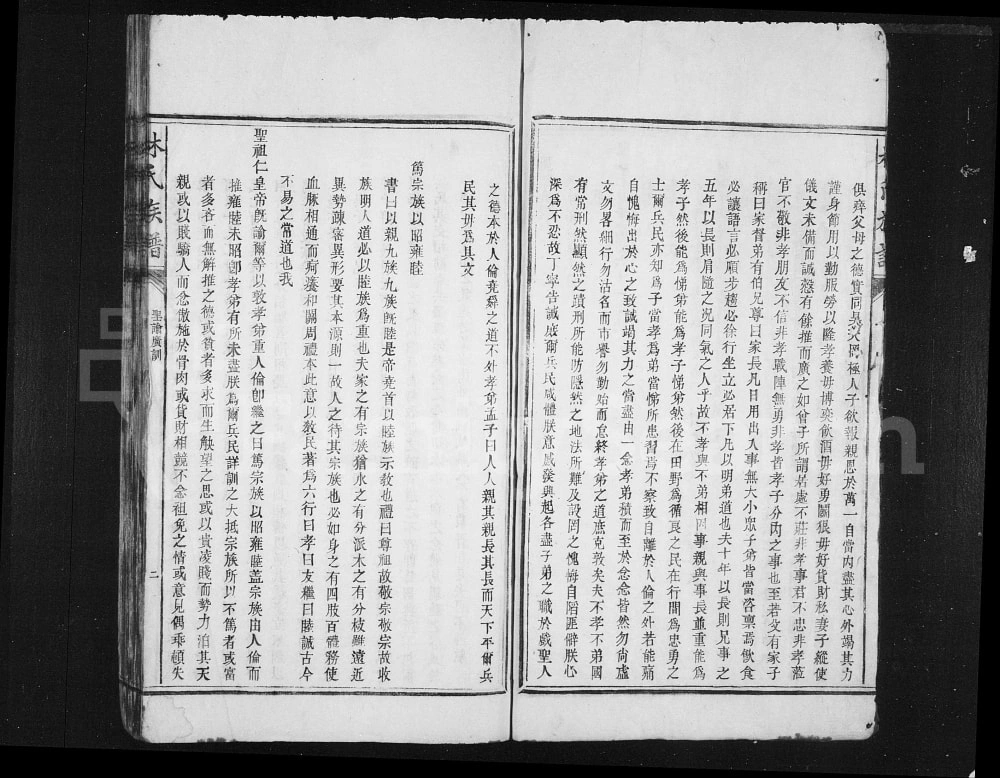 俱瘁父母之德實同昊天罔極人子欲報親恩於萬一自當內盡其心外竭其力
謹身節用以勤服勞以隆孝養毋博奕飲酒毋好勇鬭狠毋好貨財私妻子縱使
儀文未備而誠慤有餘推而廣之如曾子所謂居處不莊非孝事君不忠非孝蒞
官不敬非孝朋友不信非孝戰陣無勇非孝皆孝子分內之事也至若父有家子
稱曰家督弟有伯兄尊曰家長凡日用出入事無大小眾子弟皆當咨稟焉飲食
必讓語言必順步趨必徐行坐立必居下凡以明弟道也夫十年以長則兄事之
五年以長則肩隨之況同氣之人乎故不孝與不弟相因事親與事長並重能為
孝子然後能為悌弟能為孝子悌弟然後在田野為循良之民在行間為忠勇之
士爾兵民亦知為子當孝為弟當悌所患習焉不察致自離於人倫之外若能痛
自愧悔出於心之致誠竭其力之當盡由一念孝弟積而至於念念皆然勿尚虛
文勿畧細行勿沽名而市譽勿勤始而怠終孝弟之道庶克敦矣夫不孝不弟國
有常刑然顯然之蹟刑所能防隱然之地法所難及設罔之愧悔自陷匪僻朕心
深為不忍故丁寧告誡庶爾兵民咸體朕意感發興起各盡子弟之職於戲聖人
之德本於人倫堯舜之道不外孝弟孟子曰人人親其親長其長而天下平爾兵
民其毋為具文
篤宗族以昭雍睦
書曰以親九族九族既睦是帝堯首以睦族示教也禮曰尊祖故敬宗敬宗故收
族明人道必以睦族為重也夫家之有宗族猶水之有分派木之有分枝雖遠近
異勢疎密異形要其本源則一故人之待其宗族也必如身之有四肢百體務使
血脈相通而疴癢相關周禮本此意以教民著為六行曰孝曰友繼曰睦誠古今
不易之常道也我
聖祖仁皇帝既諭爾等以敦孝弟重人倫即繼之曰篤宗族以昭雍睦蓋宗族由人倫而
推雍睦未昭即孝弟有所未盡朕為爾兵民詳訓之大抵宗族所以不篤者或富
者多吝而無解推之德或貧者多求而生觖望之思或以貴凌賤而勢力汨其天
親或以賤驕人而忿傲施於骨肉或貨財相競不念袒免之情或意見偶乖頓失
林氏族譜
聖諭廣訓
二